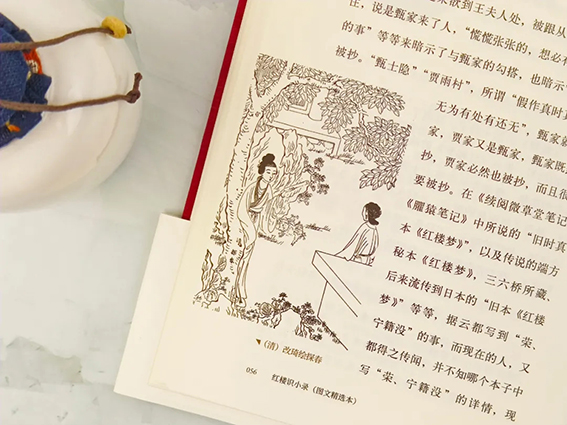 来欲到王夫人处，被跟从
住，说是甄家来了人，“慌慌张张的，想必有
的事”等等来暗示了与甄家的勾搭，也暗示
被抄。“甄士隐”“贾雨村”，所谓“假作真时真
无为有处有还无”，甄家就
家，贾家又是甄家，甄家既
抄，贾家必然也被抄，而且很
要被抄。在《续阅微草堂笔记
《臞猿笔记》中所说的“旧时真
本《红楼梦》”，以及传说的端方
秘本《红楼梦》，三六桥所藏、
后来流传到日本的“旧本《红楼
梦》”等等，据云都写到“荣、
宁籍没”的事，而现在的人，又
都得之传闻，并不知哪个本子中
写“荣、宁籍没”的详情，现
（清）改琦绘探春
056 红楼识小录（图文精选本）